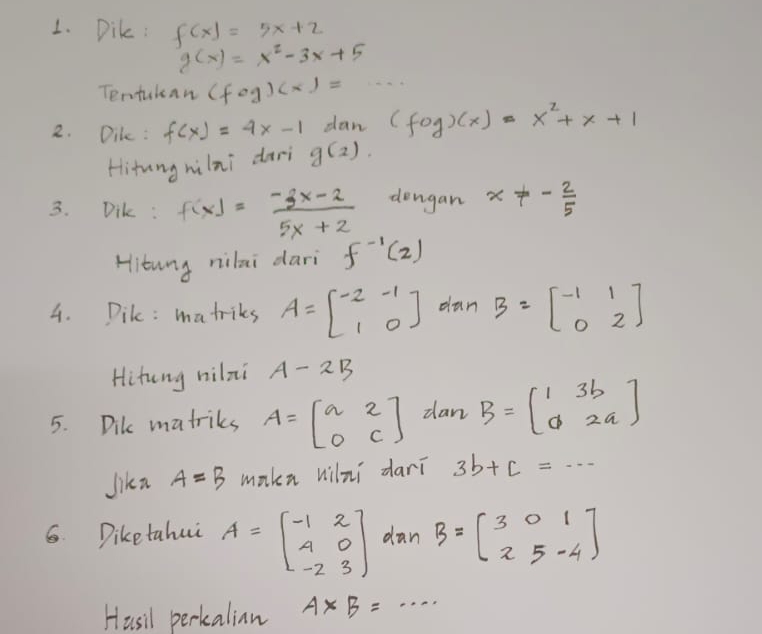 1. Dik : f(x) = 5x + 2
g(x) = x² - 3x + 5
Tentukan (fog)(x) = ....
2. Dik : f(x) = 4x - 1 dan (fog)(x) = x² + x + 1
Hitung nilai dari g(2).
3. Dik : f(x) = (-3x - 2)/(5x + 2) dengan x ≠ -2/5
Hitung nilai dari f⁻¹(2)
4. Dik : matriks A = [-2 -1; 1 0] dan B = [-1 1; 0 2]
Hitung nilai A - 2B
5. Dik matriks A = [a 2; 0 c] dan B = [1 3b; 0 2a]
Jika A = B maka nilai dari 3b + c = ---
6. Diketahui A = [-1 2; 4 0; -2 3] dan B = [3 0 1; 2 5 -4]
Hasil perkalian A × B = ....